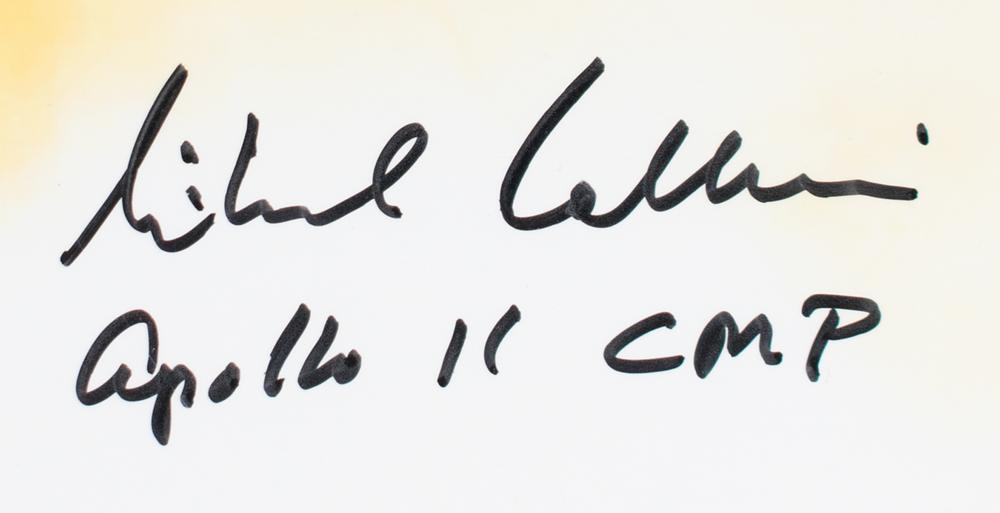 Michael Collins
Apollo 11 CMP